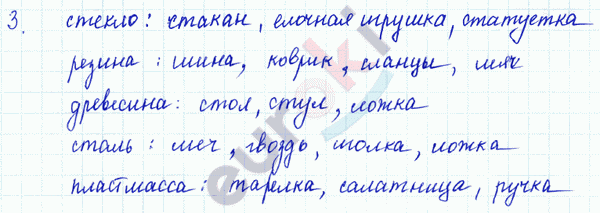 3. стекло: стакан, елочная игрушка, статуетка
резина: шина, коврик, сланцы, мяч
древесина: стол, стул, ложка
сталь: меч, гвоздь, иголка, ложка
пластмасса: тарелка, салатница, ручка
euroki